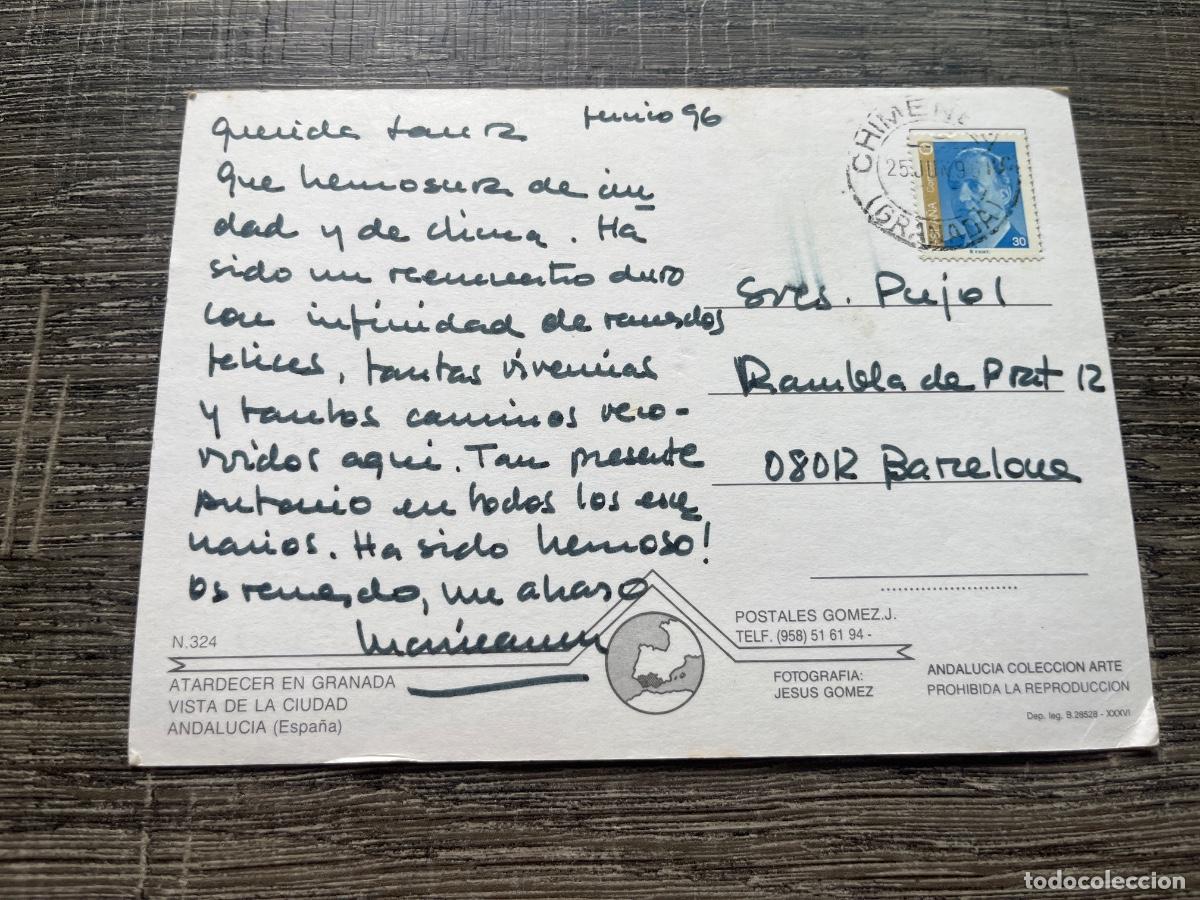 Querida Laura Junio 96
Que hermosura de ciu
dad y de clima. Ha
sido un reencuentro duro
con infinidad de recuerdos
felices, tantas vivencias
y tantos caminos reco-
rridos aqui. Tan presente
Antonio en todos los esce
narios. Ha sido hermoso!
Os recuerdo, un abrazo
CHIMEN
25 JUN 9
(GRANADA)
ESPAÑA
30
Sres. Pujol
Rambla de Prat 12
08012 Barcelona
N.324
ATARDECER EN GRANADA
VISTA DE LA CIUDAD
ANDALUCIA (España)
POSTALES GOMEZ.J.
TELF. (958) 51 61 94 -
FOTOGRAFIA:
JESUS GOMEZ
ANDALUCIA COLECCION ARTE
PROHIBIDA LA REPRODUCCION
Dep. leg. B.28528 - XXXVI
todocoleccion